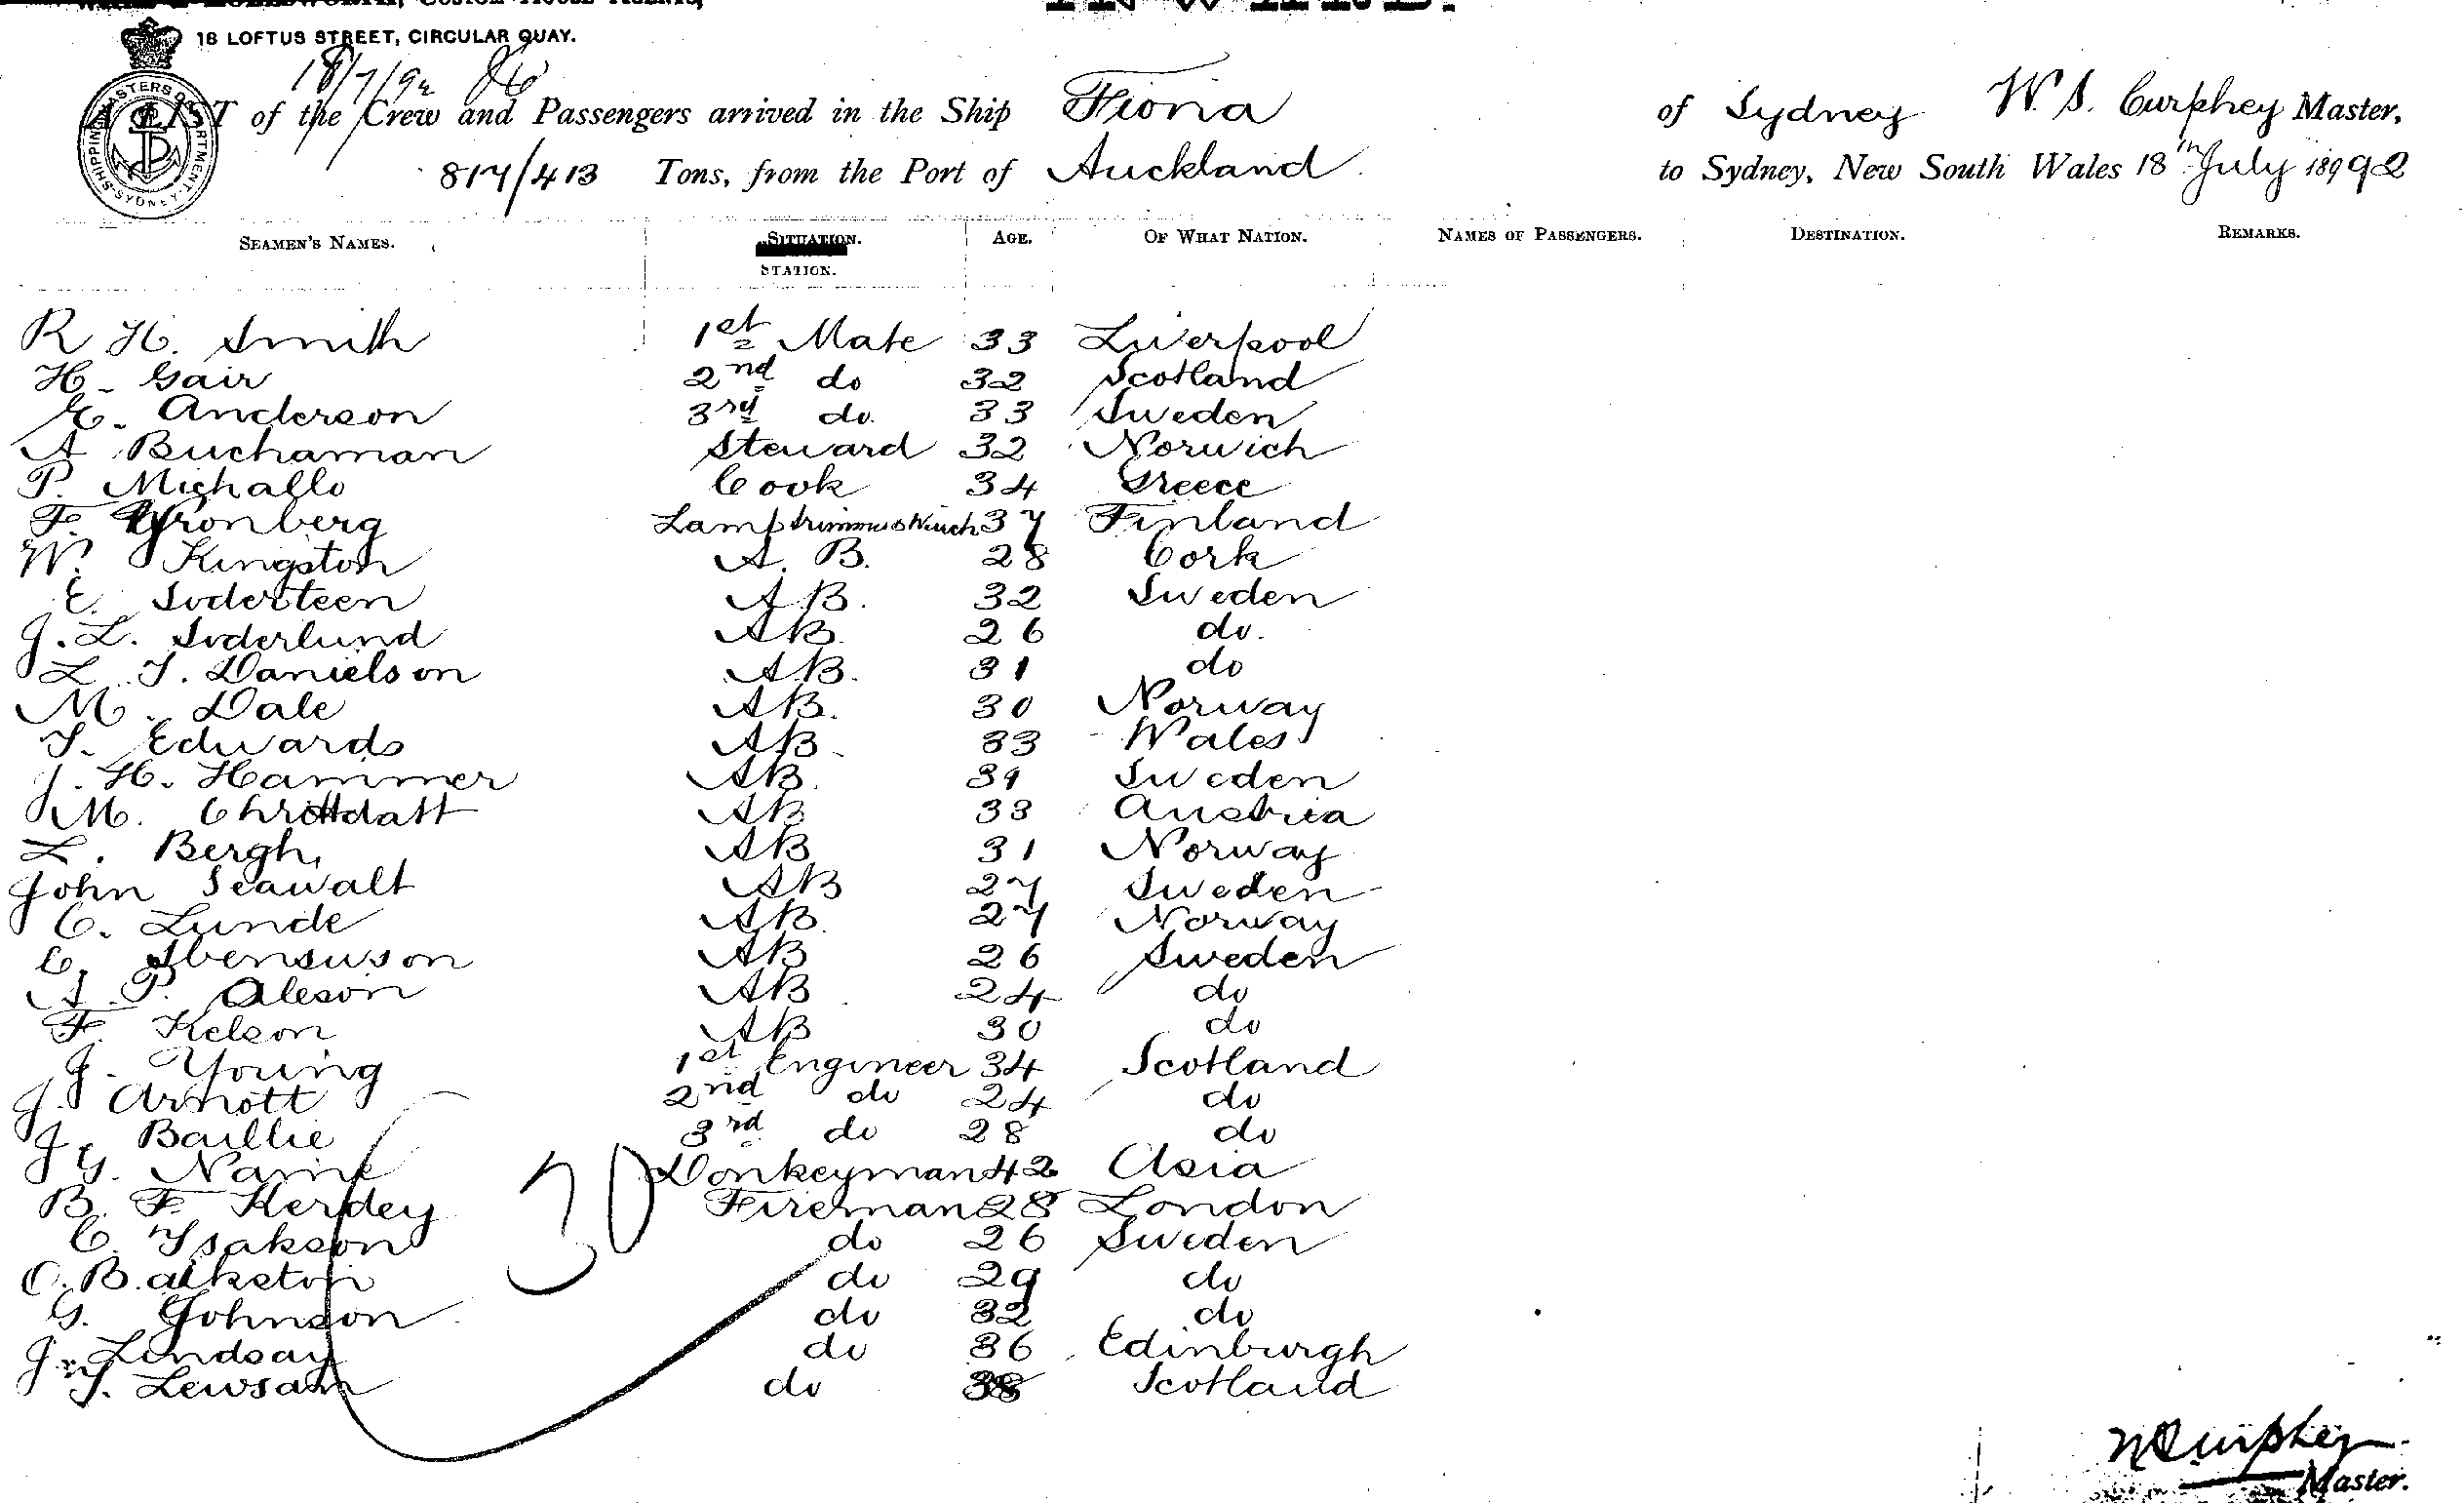 18 LOFTUS STREET, CIRCULAR QUAY.
18/7/92
A LIST of the Crew and Passengers arrived in the Ship Fiona of Sydney W. S. Curphey Master,
817/413 Tons, from the Port of Auckland to Sydney, New South Wales 18th July 18992
SEAMEN'S NAMES. SITUATION. STATION. AGE. OF WHAT NATION. NAMES OF PASSENGERS. DESTINATION. REMARKS.
R H. Smith 1st Mate 33 Liverpool
H. Gair 2nd do 32 Scotland
E. Anderson 3rd do. 33 Sweden
A Buchaman Steward 32 Norwich
P. Michallo Cook 34 Greece
F. Gronberg Lamptrimmer & Winch 37 Finland
W. Kingston A. B. 28 Cork
E. Soderteen A.B. 32 Sweden
J. L. Soderlund AB. 26 do.
L. J. Danielson AB. 31 do
M. Dale AB. 30 Norway
T. Edwards AB. 33 Wales
J. H. Hammer AB. 39 Sweden
M. AB 33 Austria
L. Bergh, AB 31 Norway
John Seawalt AB 27 Sweden
C. Lunde AB. 27 Norway
E. AB 26 Sweden
A. P. Oleson AB 24 do
F. Kelson AB 30 do
J. Young 1st Engineer 34 Scotland
J. Arnott 2nd do 24 do
J. Baillie 3rd do 28 do
G. Naime Donkeyman 42 Asia
B. F. Kerdey Fireman 28 London
C. Ysakson do 26 Sweden
O. B. do 29 do
G. Johnson do 32 do
J. Lindsay do 36 Edinburgh
J. Lewsam do 38 Scotland
30
W S Curphey
Master.